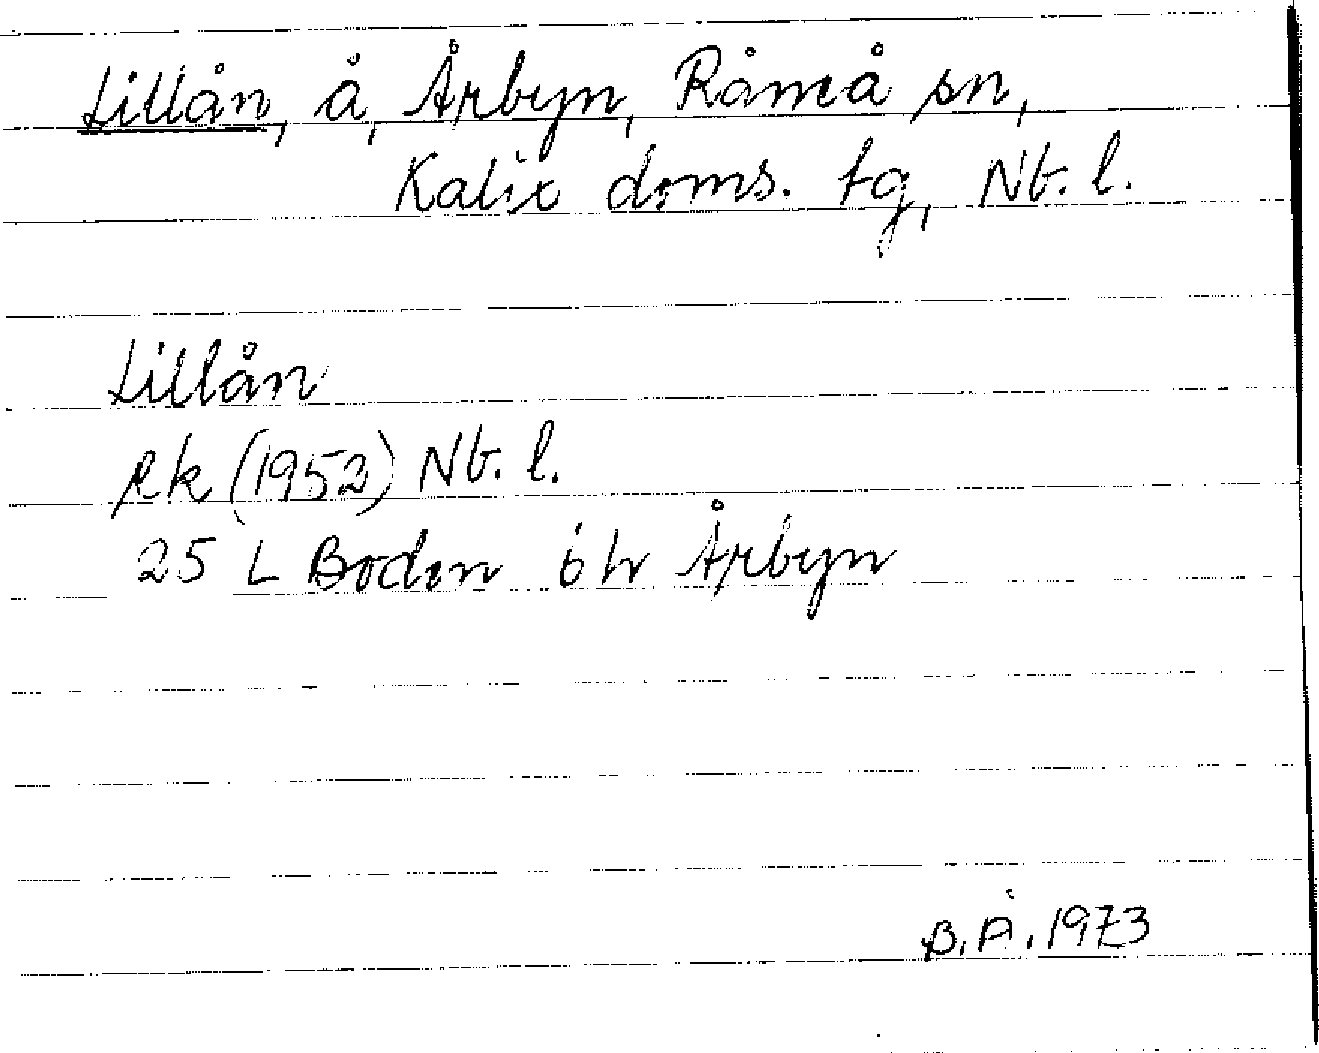 Lillån, å, Årbyn, Råneå sn,
Kalix doms. tg, Nb. l.
Lillån
Rk (1952) Nb. l.
25 L Boden öh Årbyn
B.Å. 1973